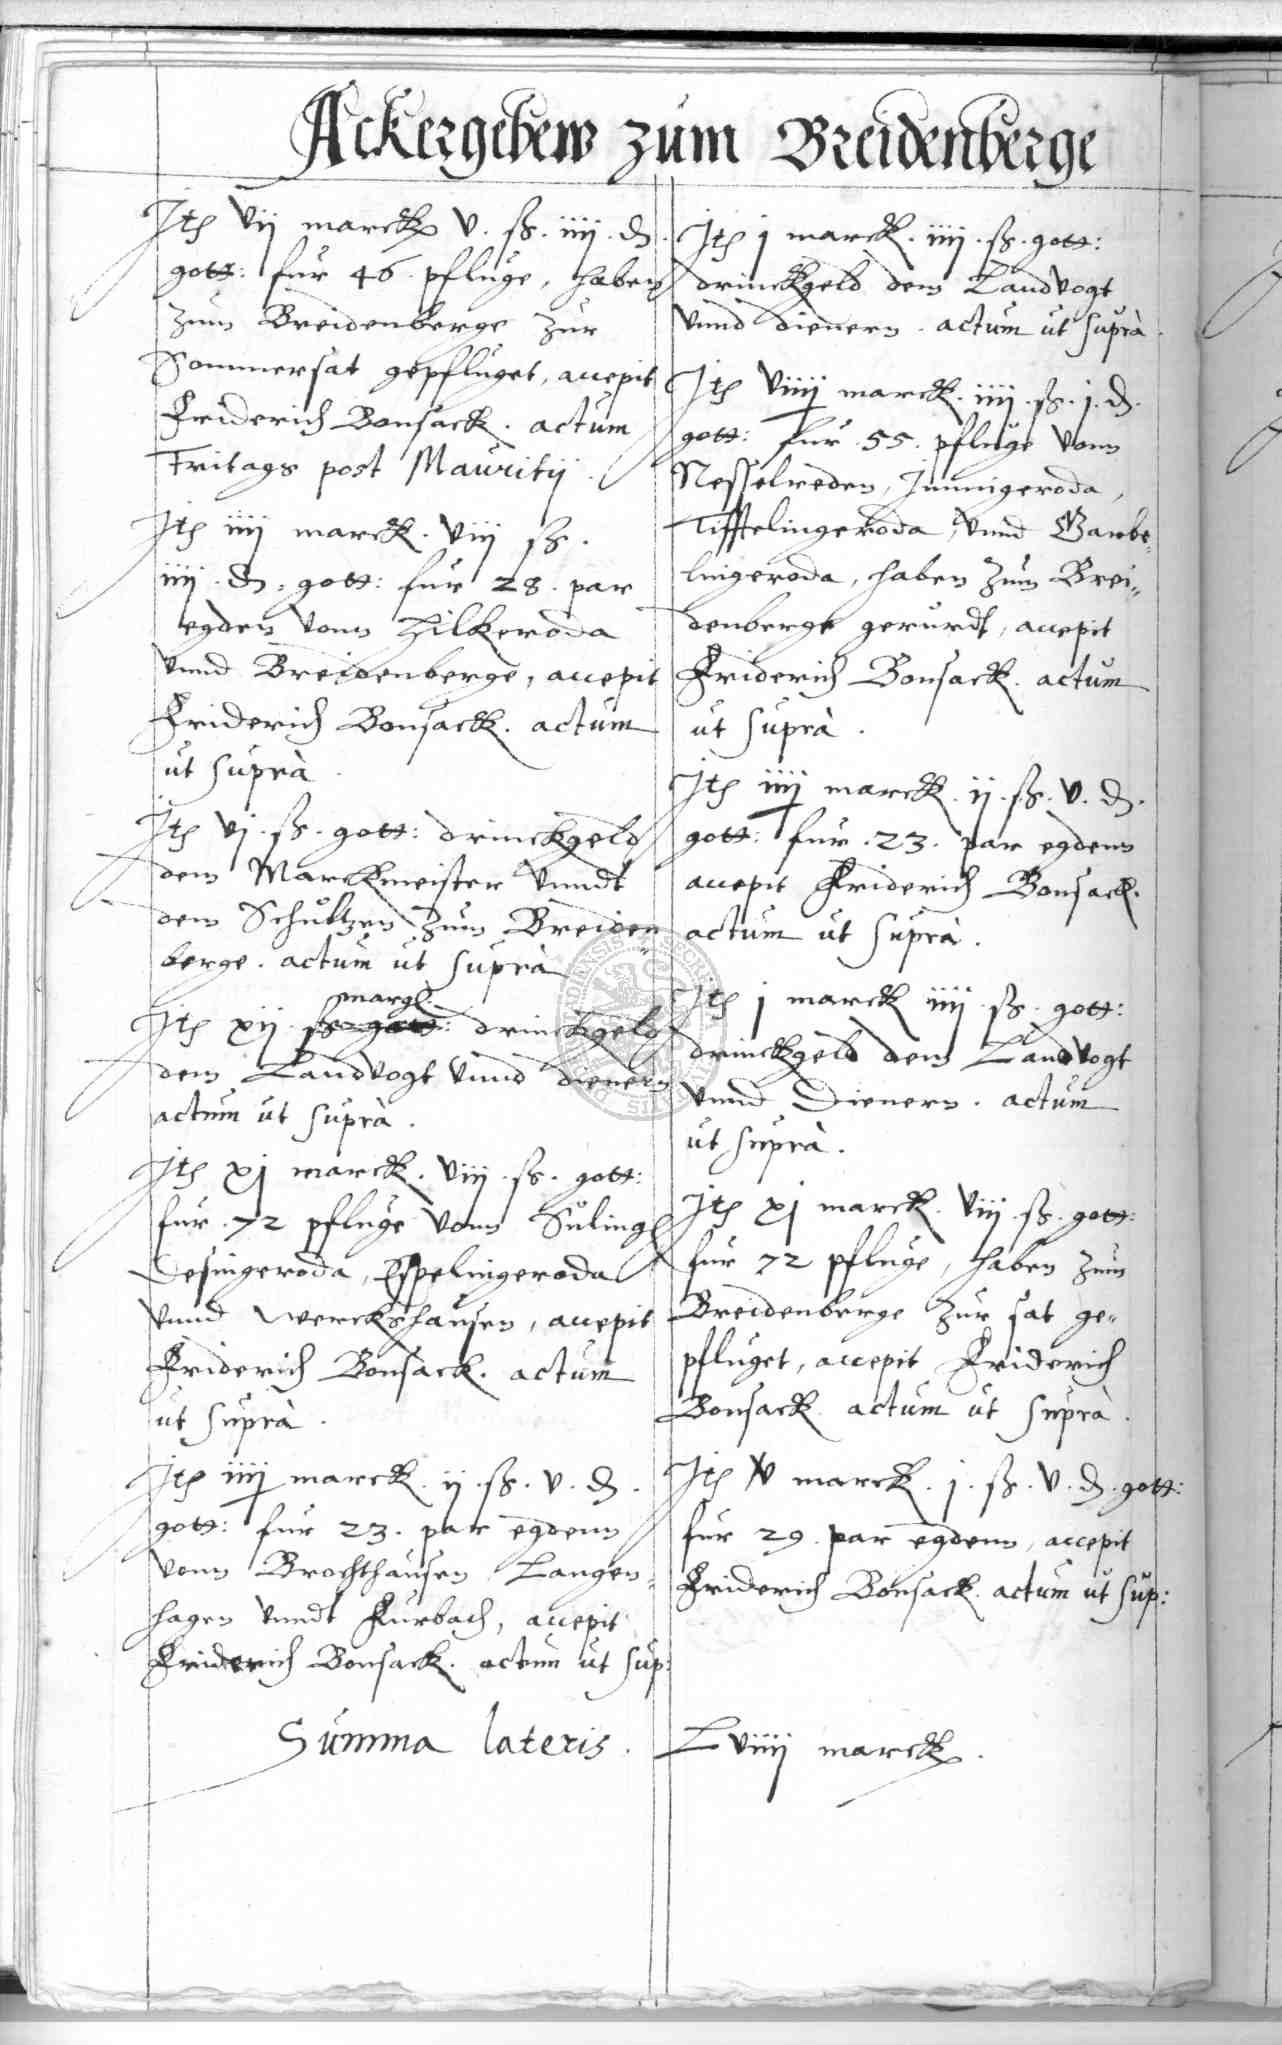 Ackergebew zum Breidenberge
Ite vij marck v. ß. iiij. d.
gott: fur 46. pfluge, haben
zum Breidenberge zur
Sommersat gepfluget, accepit
Friderich Bonsack. actum
Fritags post Mauritij.
Ite iiij marck. viij ß.
iiij. d. gott: fur 28. par
egden vonn Hilkeroda
vnnd Breidenberge, accepit
Friderich Bonsack. actum
ut suprà.
Ite vj. ß. gott: drinckgeld
dem Marckmeister vnndt
dem Schultzen zum Breiden„
berge. actum ut suprà
margl.
Ite xij. ß. gott: drinckgeld
dem Landvogt vnnd dienern
actum ut suprà.
Ite xj marck. viij. ß. gott:
fur. 72 pfluge vonn Suling
Desingeroda, Espelingeroda
vnnd Werckshausen, accepit
Friderich Bonsack. actum
ut suprà.
Ite iiij marck. ij. ß. v. d.
gott: fur 23. par egdenn
vonn Brochthausen Langen„
hagen vnndt Furbach, accepit
Friderich Bonsack. actum ut sup:
Ite j marck. iiij. ß. gott:
drinckgeld dem Landvogt
vnnd dienern. actum ut suprà.
Ite viiij marck. iiij. ß. j. d.
gott: fur. 55. pfluge vonn
Nesselreden, Immigeroda,
Tifftelingeroda, vnnd Garbe„
lingeroda, haben zum Brei„
denberge gerurdt, accepit
Friderich Bonsack. actum
ut suprà.
Ite iiij marck. ij. ß. v. d.
gott: fur. 23. par egdenn
accepit Friderich Bonsack.
actum ut suprà.
Ite j marck iiij. ß. gott:
drinckgeld dem Landvogt
vnnd Dienern. actum
ut suprà.
Ite xj marck. viij. ß. gott:
fur 72 pfluge, haben zum
Breidenberge zur sat ge„
pfluget, accepit Friderich
Bonsack. actum ut suprà.
Ite v marck. j. ß. v. d. gott:
fur 29. par egdenn, accepit
Friderich Bonsack. actum ut sup:
Summa lateris. Lviiij marck.